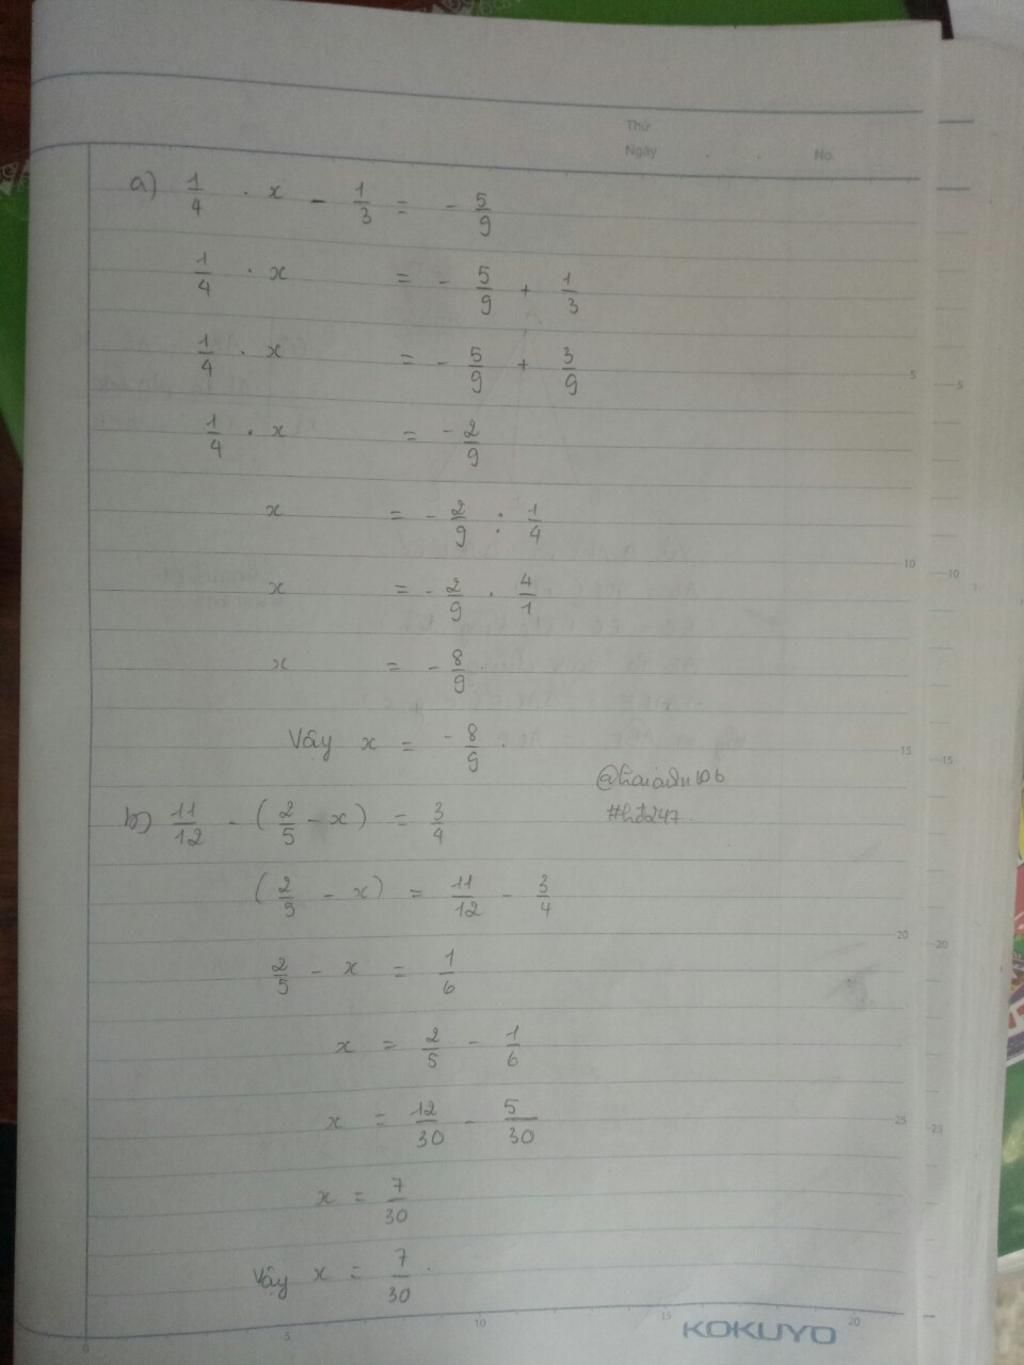 Thứ
Ngày . . No.
a) 1/4 . x - 1/3 = - 5/9
1/4 . x = - 5/9 + 1/3
1/4 . x = - 5/9 + 3/9
1/4 . x = - 2/9
x = - 2/9 : 1/4
x = - 2/9 . 4/1
x = - 8/9
Vậy x = - 8/9 .
#hđ247.
b) 11/12 - (2/5 - x) = 3/4
(2/5 - x) = 11/12 - 3/4
2/5 - x = 1/6
x = 2/5 - 1/6
x = 12/30 - 5/30
x = 7/30
Vậy x = 7/30 .
5
10
15
20
25
5
10
15
20
25
0 5 10 15 20
KOKUYO